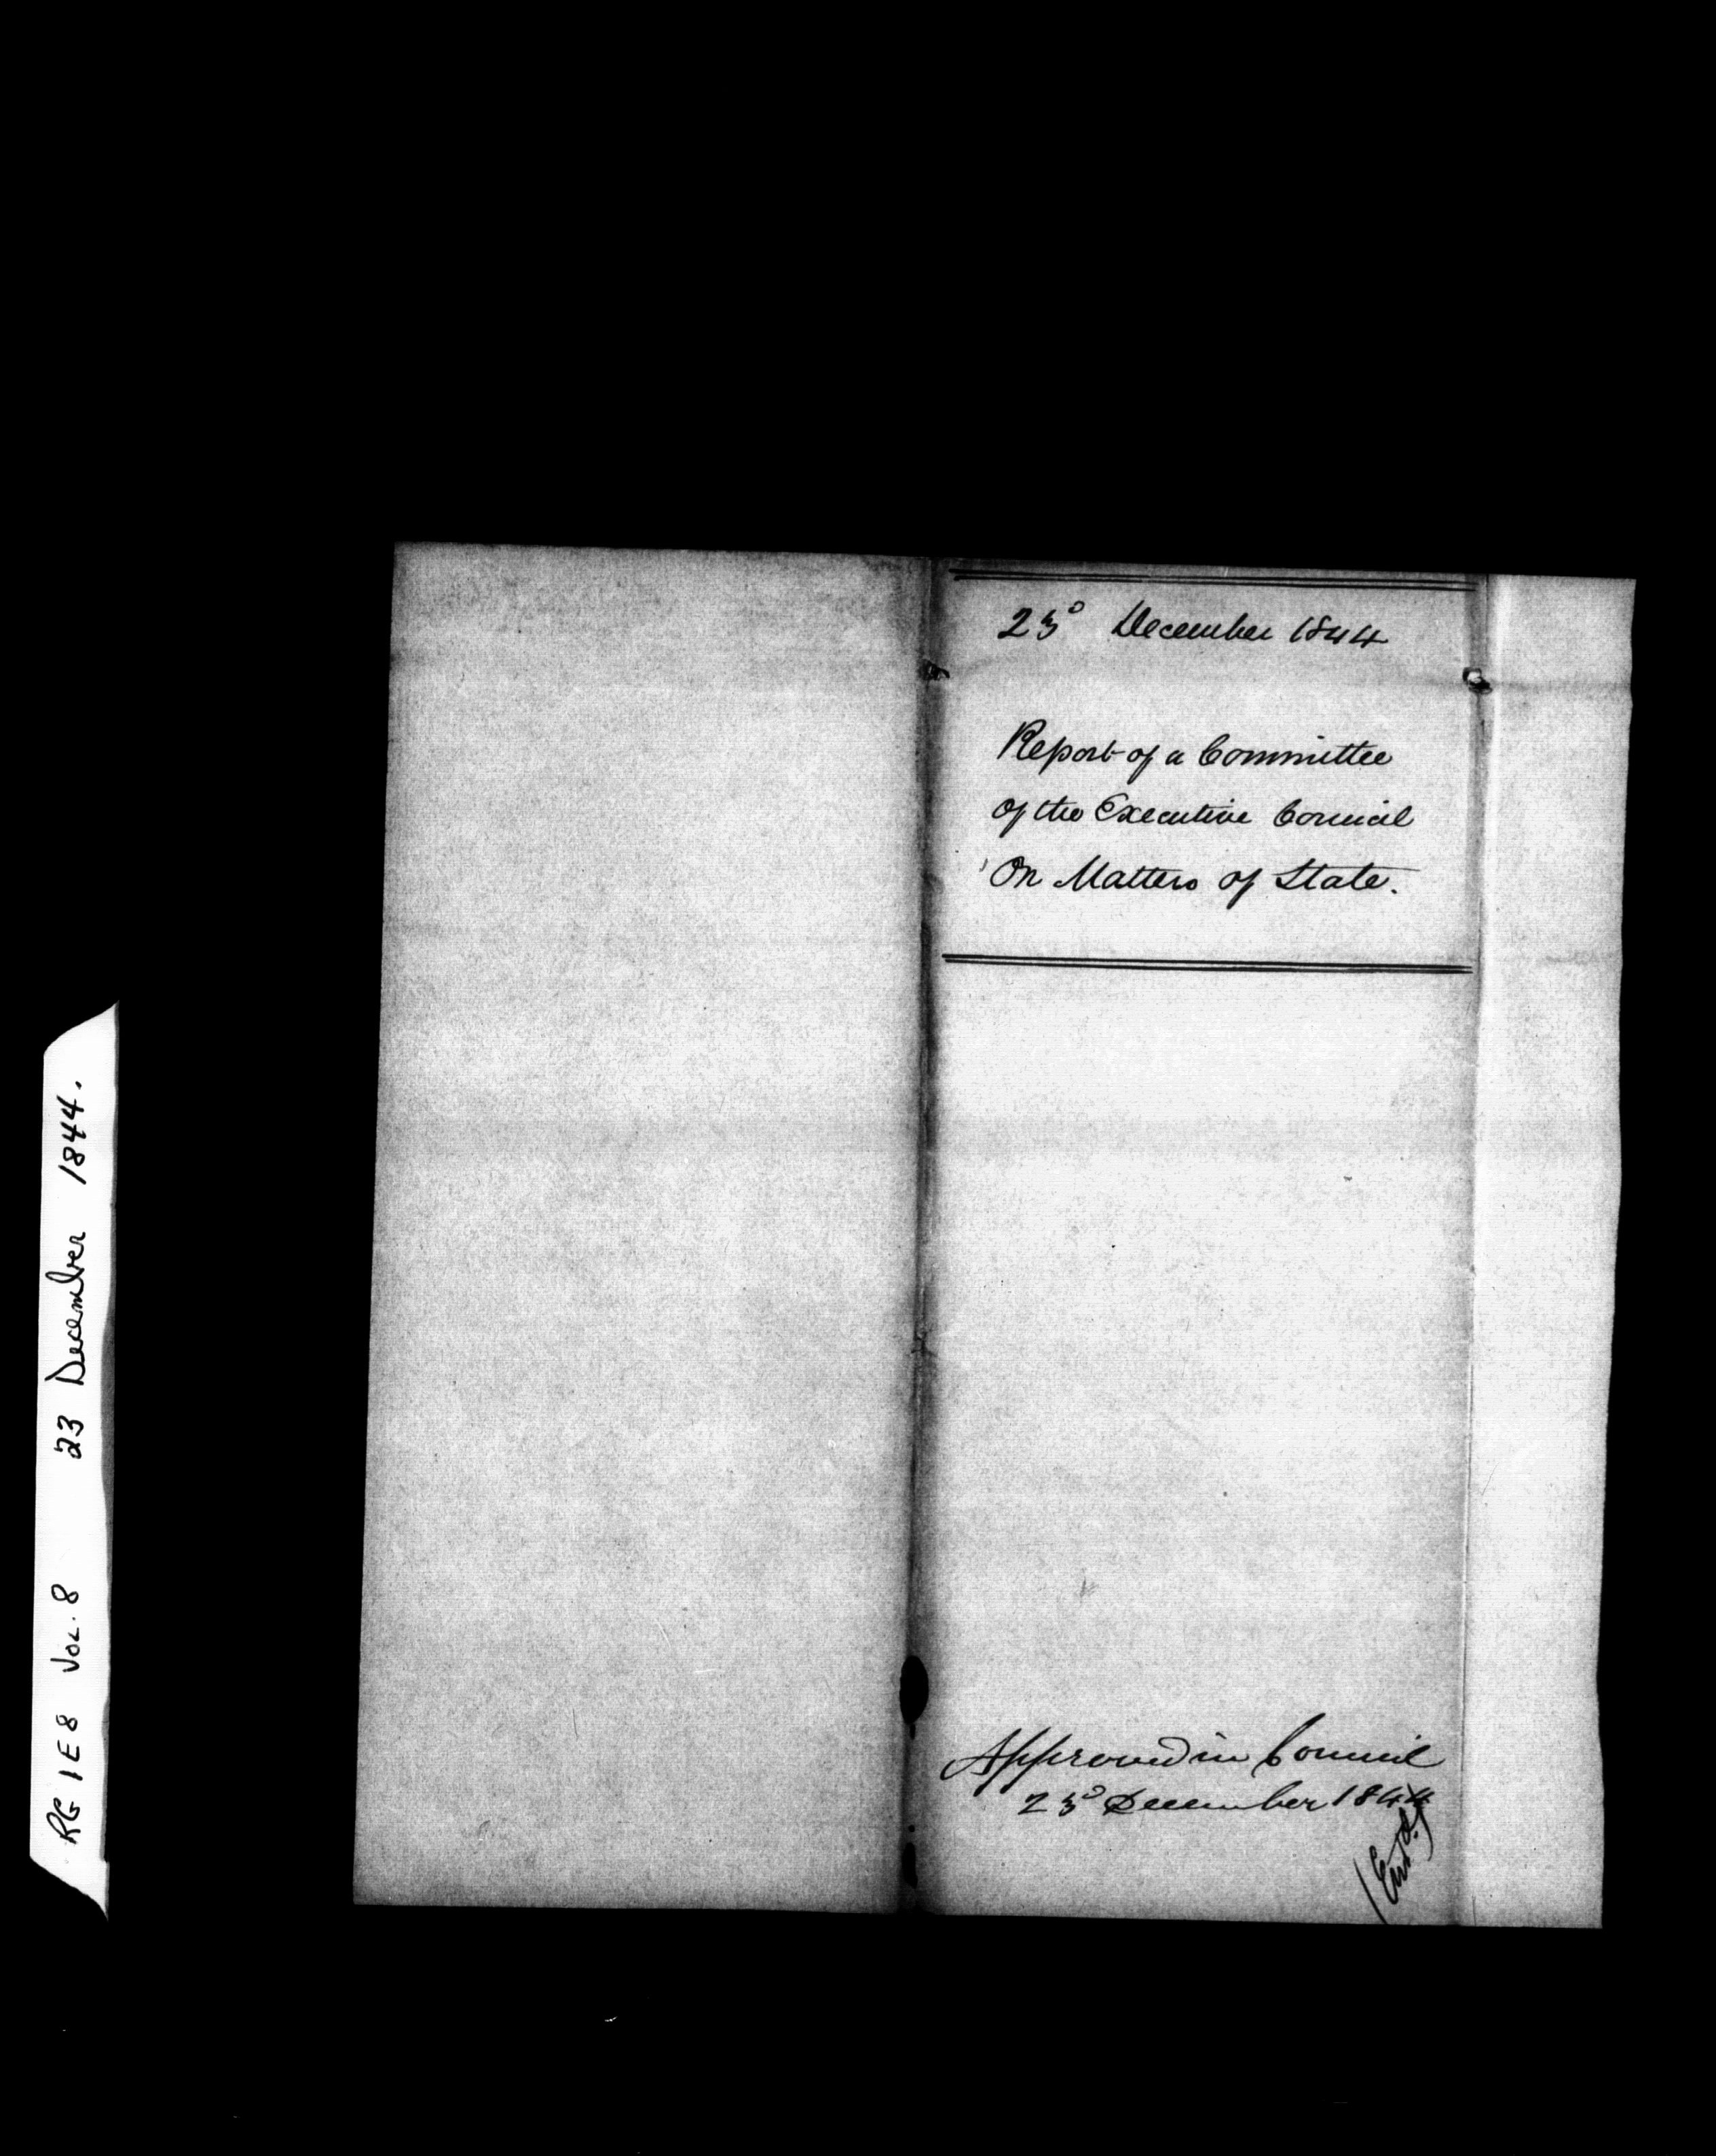 23° December 1844
Report of a Committee
Of the Executive Council
On Matters of State.
Approved in Council
23° December 1844
(Entd.)
RG 1 E 8 VOL. 8 23 December 1844.